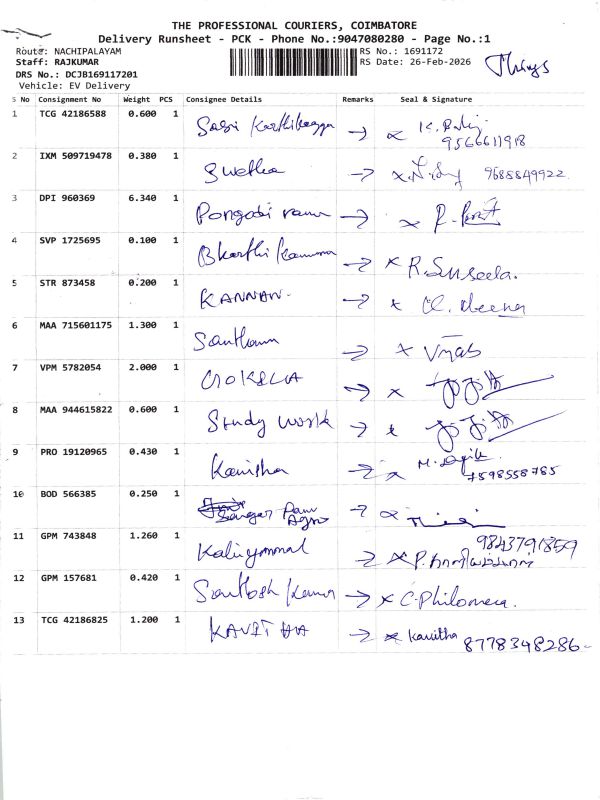 THE PROFESSIONAL COURIERS, COIMBATORE
Delivery Runsheet - PCK - Phone No.:9047080280 - Page No.:1
Route: NACHIPALAYAM RS No.: 1691172
Staff: RAJKUMAR RS Date: 26-Feb-2026
DRS No.: DCJB169117201
Vehicle: EV Delivery
S No Consignment No Weight PCS Consignee Details Remarks Seal & Signature
1 TCG 42186588 0.600 1 → x
9566611918
2 IXM 509719478 0.380 1 Swetha → x 9688849922
3 DPI 960369 6.340 1 → x
4 SVP 1725695 0.100 1 → x R. Suseela.
5 STR 873458 0.200 1 KANNAN. → x Meena
6 MAA 715601175 1.300 1 → x
7 VPM 5782054 2.000 1 → x
8 MAA 944615822 0.600 1 Study work → x
9 PRO 19120965 0.430 1 Kanisha → x
7598558785
10 BOD 566385 0.250 1 → x
11 GPM 743848 1.260 1 → x
9843791859
12 GPM 157681 0.420 1 Santhosh Kumar → x C. Philomena.
13 TCG 42186825 1.200 1 KAVITHA → x Kavitha
8778348286-